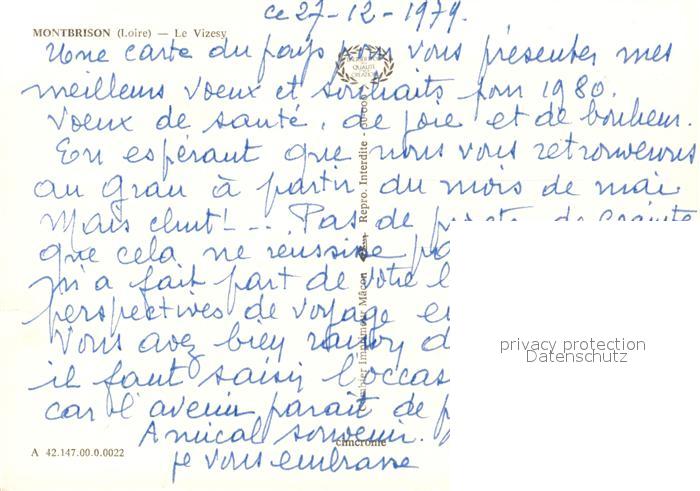 ce 27-12-1979.
MONTBRISON (Loire) — Le Vizesy
Une carte du pays pour vous présenter mes
meilleurs voeux et souhaits pour 1980.
Voeux de santé, de joie et de bonheur.
En espérant que nous vous retrouverons
au Grau à partir du mois de mai
Mais chut!... Pas de projets de crainte
que cela ne réussisse
m'a fait part de votre
perspectives de voyage
Vous avez bien raison
il faut saisir l'occas
car l'avenir parait de
Amical souvenir.
je vous embrasse
A 42.147.00.0.0022
cimcrome
Combier Imprimeur Mâcon
Repro. Interdite
QUALITÉ
privacy protection
Datenschutz